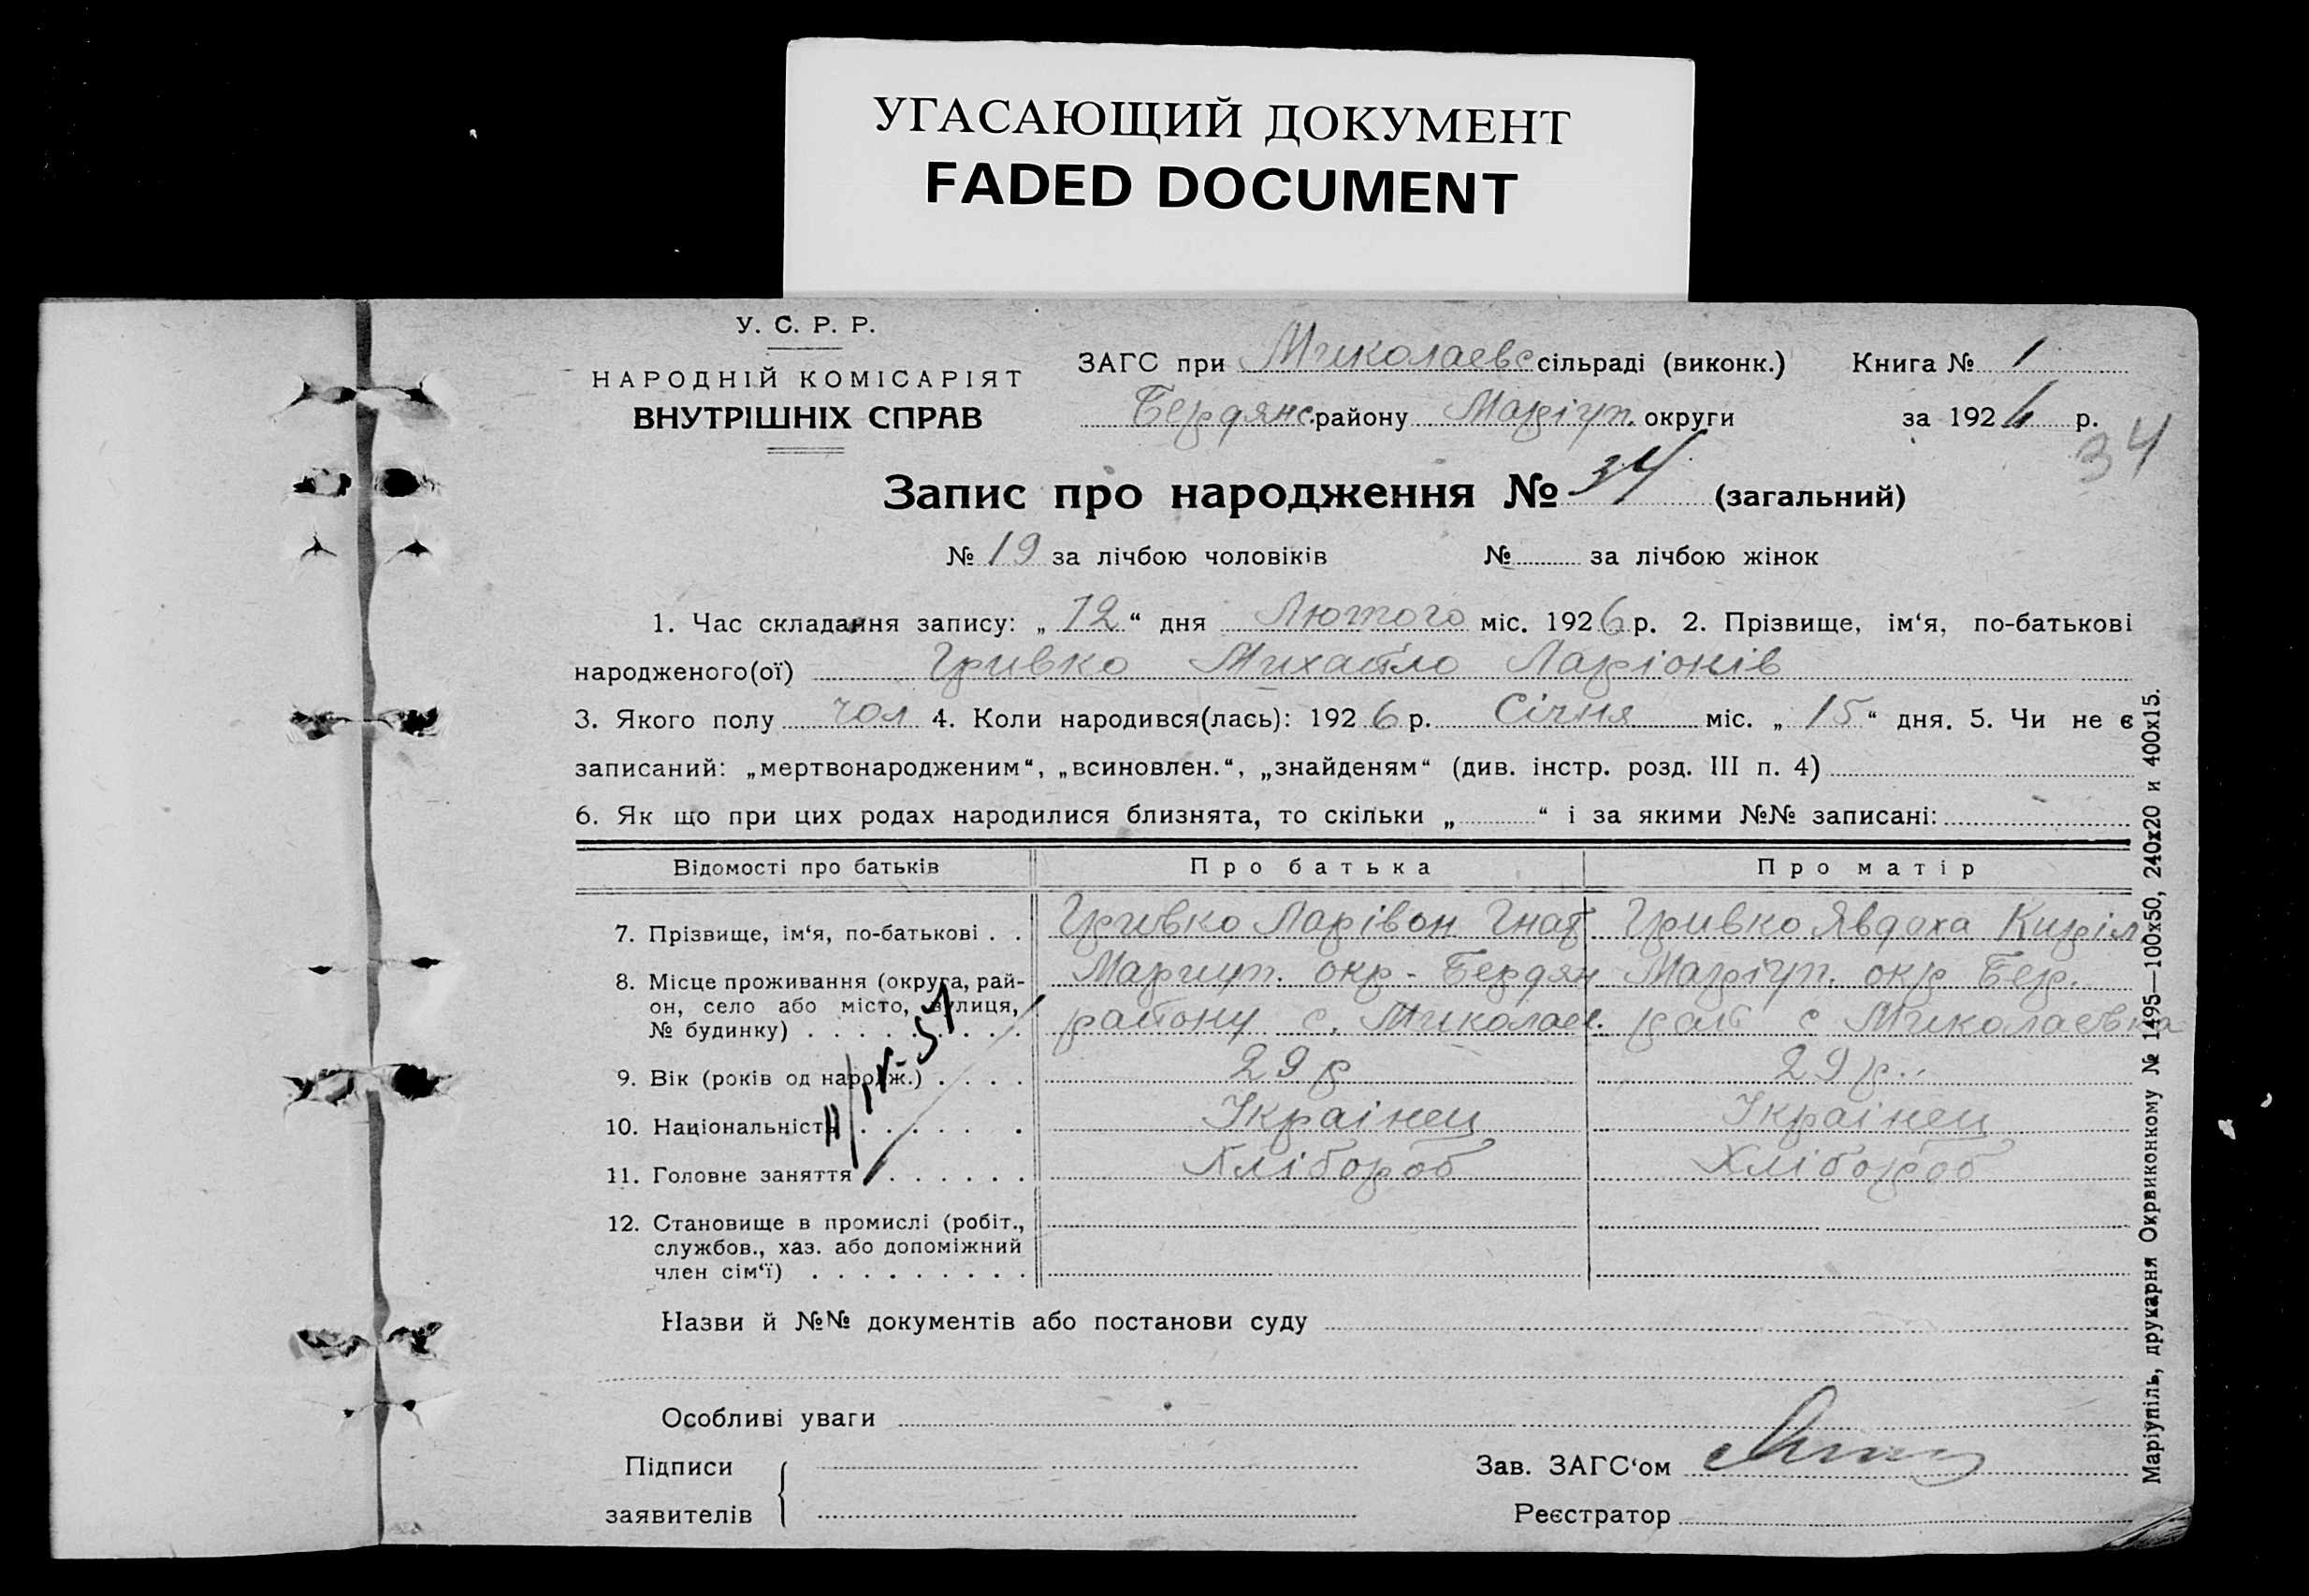 УГАСАЮЩИЙ ДОКУМЕНТ
FADED DOCUMENT
У. С. Р. Р.
НАРОДНІЙ КОМІСАРІЯТ
ВНУТРІШНІХ СПРАВ
ЗАГС при Миколаевс сільраді (виконк.) Книга № 1
Бердянс. району Маріуп. округи за 1926 р.
34
Запис про народження № 34 (загальний)
№ 19 за лічбою чоловіків № за лічбою жінок
1. Час складання запису: „12“ дня Лютого міс. 1926 р. 2. Прізвище, ім‘я, по-батькові
народженого(ої) Гривко Михайло Ларіонів
3. Якого полу чол 4. Коли народився(лась): 1926 р. Січня міс. „15“ дня. 5. Чи не є
записаний: „мертвонародженим“, „всиновлен.“, „знайденям“ (див. інстр. розд. III п. 4)
6. Як що при цих родах народилися близнята, то скільки „ “ і за якими №№ записані:
Відомості про батьків Про батька Про матір
7. Прізвище, ім‘я, по-батькові . . Гривко Ларівон Гнат Гривко Явдоха Кирил
8. Місце проживання (округа, рай-
он, село або місто, вулиця,
№ будинку) . . . . . . . . .
Мариуп. окр - Бердян Маріуп. окр Бер.
району с. Миколаев. рай с Миколаевка
9. Вік (років од народж.) . . . . 29 р 29 р..
10. Національність . . . . . . Украінец Украінец
11. Головне заняття . . . . . . Хлібороб Хлібороб
12. Становище в промислі (робіт.,
службов., хаз. або допоміжний
член сім‘ї) . . . . . . . . .
Назви й №№ документів або постанови суду
Особливі уваги
Підписи
заявителів
Зав. ЗАГС‘ом
Реєстратор
Маріупіль, друкарня Окрвиконкому № 1495—100х50, 240х20 и 400х15.